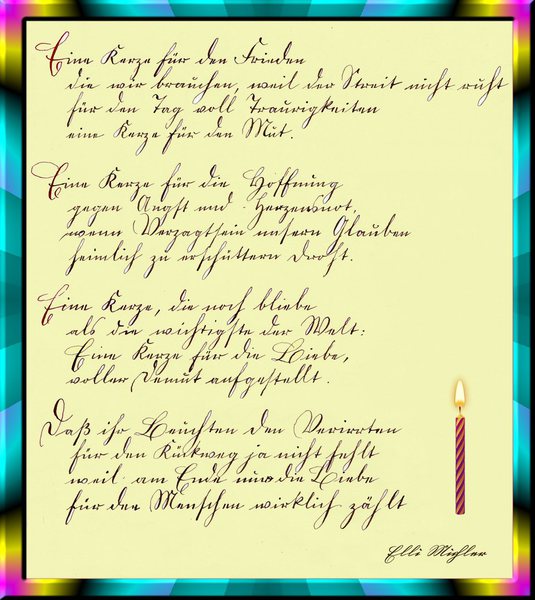 Eine Kerze für den Frieden
die wir brauchen, weil der Streit nicht ruht
für den Tag voll Traurigkeiten
eine Kerze für den Mut.
Eine Kerze für die Hoffnung
gegen Angst und Herzensnot,
wenn Verzagtsein unsern Glauben
heimlich zu erschüttern droht.
Eine Kerze, die noch bliebe
als die wichtigste der Welt:
Eine Kerze für die Liebe,
voller Demut aufgestellt.
Daß ihr Leuchten den Verirrten
für den Rückweg ja nicht fehlt
weil am Ende nur die Liebe
für den Menschen wirklich zählt
Elli Michler